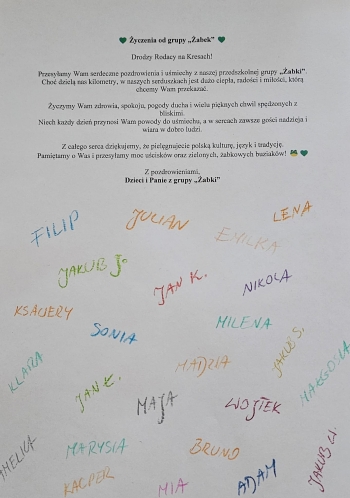 💚 Życzenia od grupy „Żabek” 💚
Drodzy Rodacy na Kresach!
Przesyłamy Wam serdeczne pozdrowienia i uśmiechy z naszej przedszkolnej grupy „Żabki”.
Choć dzielą nas kilometry, w naszych serduszkach jest dużo ciepła, radości i miłości, którą
chcemy Wam przekazać.
Życzymy Wam zdrowia, spokoju, pogody ducha i wielu pięknych chwil spędzonych z
bliskimi.
Niech każdy dzień przynosi Wam powody do uśmiechu, a w sercach zawsze gości nadzieja i
wiara w dobro ludzi.
Z całego serca dziękujemy, że pielęgnujecie polską kulturę, język i tradycję.
Pamiętamy o Was i przesyłamy moc uścisków oraz zielonych, żabkowych buziaków! 🐸💚
Z pozdrowieniami,
Dzieci i Panie z grupy „Żabki”
FILIP
JULIAN
LENA
EMILKA
JAKUB J.
JAN K.
NIKOLA
KSAWERY
SONIA
MILENA
JAKUB S.
KLARA
MADZIA
MAŁGOSIA
JAN Ł.
MAJA
WOJTEK
AMELKA
MARYSIA
BRUNO
KACPER
MIA
ADAM
JAKUB